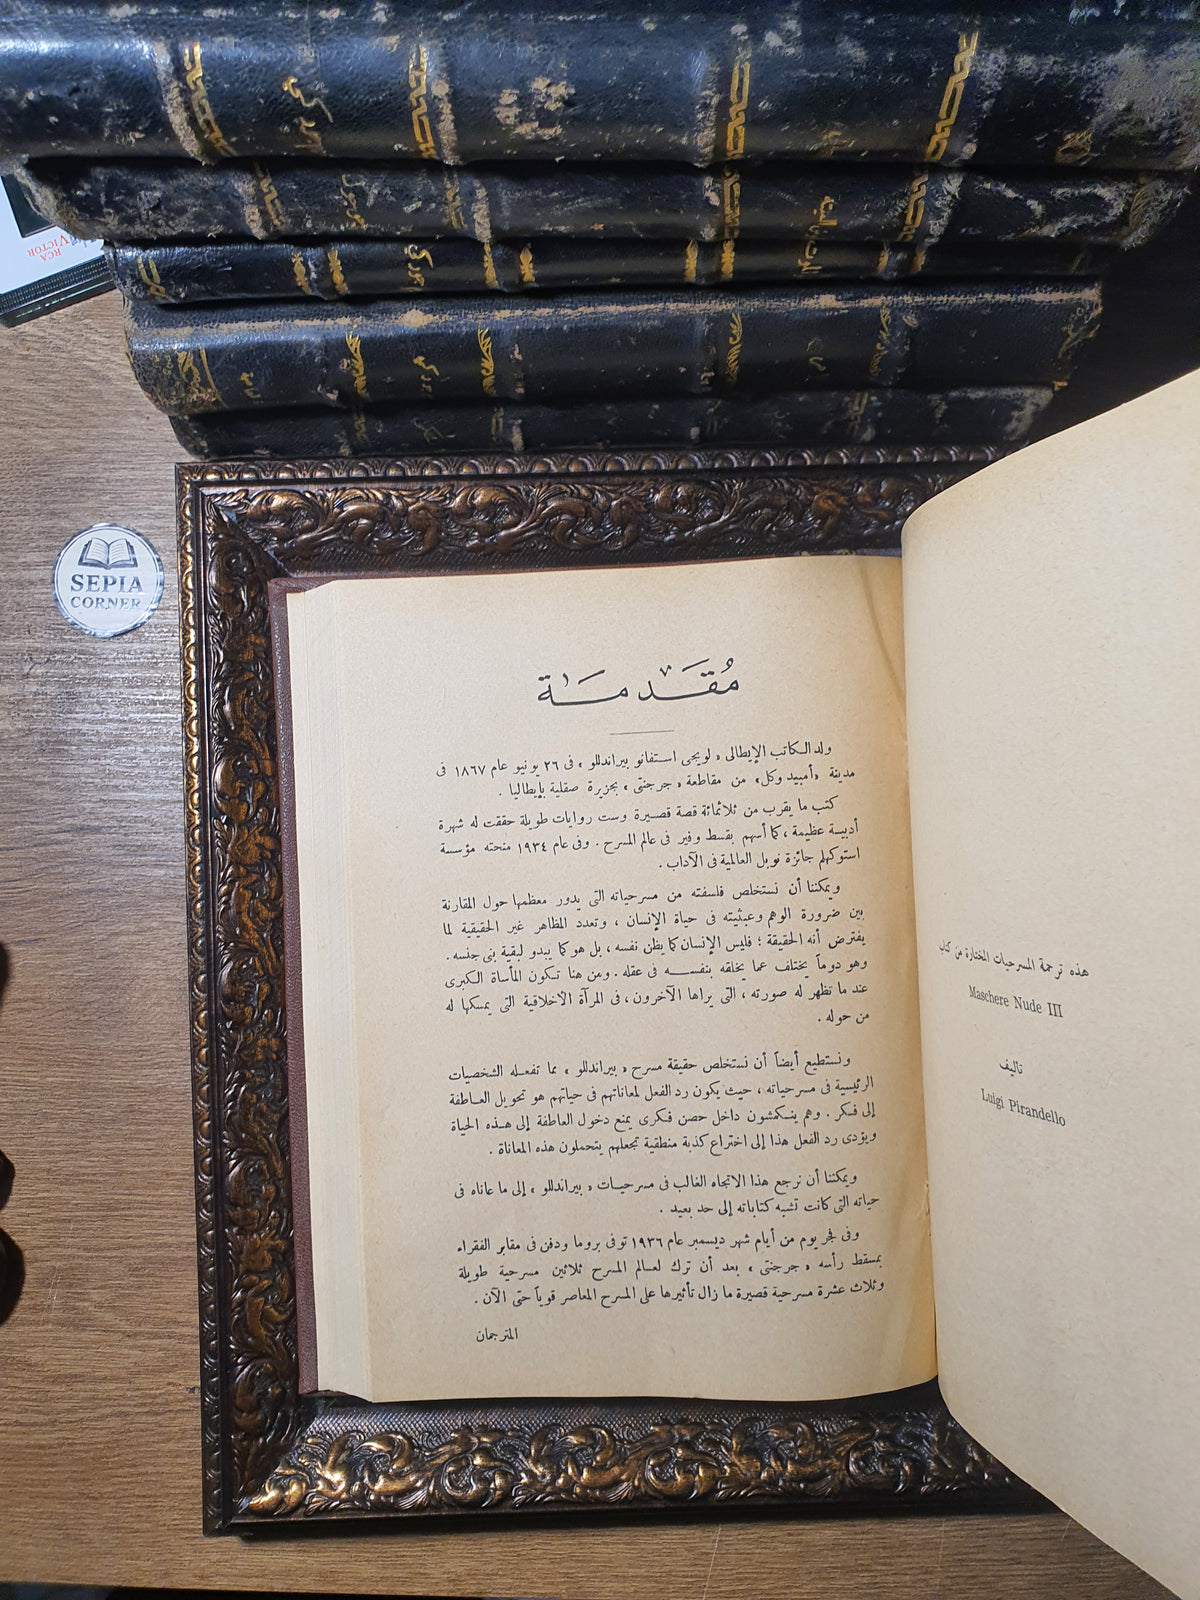 RCA
VICTOR
SEPIA
CORNER
هذه ترجمة المسرحيات المختارة من كتاب
Maschere Nude III
تأليف
Luigi Pirandello
مُقَدّمَة
ولد الكاتب الإيطالى « لويجى استفانو بيراندللو » فى ٢٦ يونيو عام ١٨٦٧ فى
مدينة «أمبيدوكل» من مقاطعة « جرجنتى » بجزيرة صقلية بإيطاليا .
كتب ما يقرب من ثلاثمائة قصة قصيرة وست روايات طويلة حققت له شهرة
أدبية عظيمة ، كما أسهم بقسط وفير فى عالم المسرح . وفى عام ١٩٣٤ منحته مؤسسة
استوكهلم جائزة نوبل العالمية فى الآداب .
ويمكننا أن نستخلص فلسفته من مسرحياته التى يدور معظمها حول المقارنة
بين ضرورة الوهم وعبثيته فى حياة الإنسان ، وتعدد المظاهر غير الحقيقية لما
يفترض أنه الحقيقة ؛ فليس الإنسان كما يظن نفسه ، بل هو كما يبدو لبقية بنى جنسه .
وهو دوماً يختلف عما يخلقه بنفسه فى عقله . ومن هنا تكون المأساة الكبرى
عند ما تظهر له صورته ، التى يراها الآخرون ، فى المرآة الأخلاقية التى يمسكها له
من حوله .
ونستطيع أيضاً أن نستخلص حقيقة مسرح « بيراندللو » مما تفعله الشخصيات
الرئيسية فى مسرحياته ، حيث يكون رد الفعل لمعاناتهم فى حياتهم هو تحويل العاطفة
إلى فكر . وهم ينكمشون داخل حصن فكرى يمنع دخول العاطفة إلى هذه الحياة
ويؤدى رد الفعل هذا إلى اختراع كذبة منطقية تجعلهم يتحملون هذه المعاناة .
ويمكننا أن نرجع هذا الاتجاه الغالب فى مسرحيات « بيراندللو » إلى ما عاناه فى
حياته التى كانت تشبه كتاباته إلى حد بعيد .
وفى فجر يوم من أيام شهر ديسمبر عام ١٩٣٦ توفى بروما ودفن فى مقابر الفقراء
بمسقط رأسه « جرجنتى » بعد أن ترك لعالم المسرح ثلاثين مسرحية طويلة
وثلاث عشرة مسرحية قصيرة ما زال تأثيرها على المسرح المعاصر قوياً حتى الآن .
المترجمان